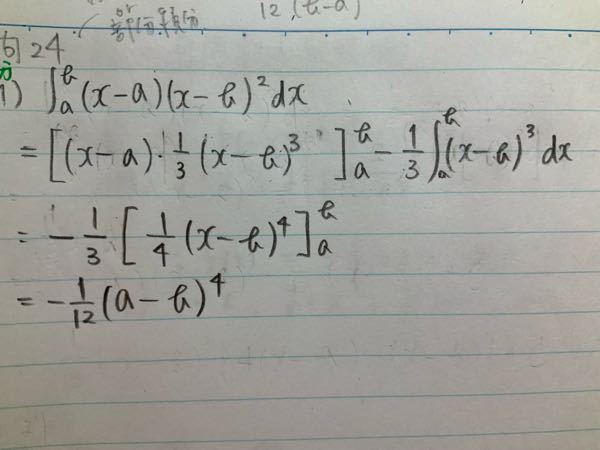 12 (b-a)
部分積分
問24
1) ∫_a^b (x-a)(x-b)^2 dx
= [(x-a)・1/3 (x-b)^3]_a^b - 1/3 ∫_a^b (x-b)^3 dx
= - 1/3 [1/4 (x-b)^4]_a^b
= - 1/12 (a-b)^4